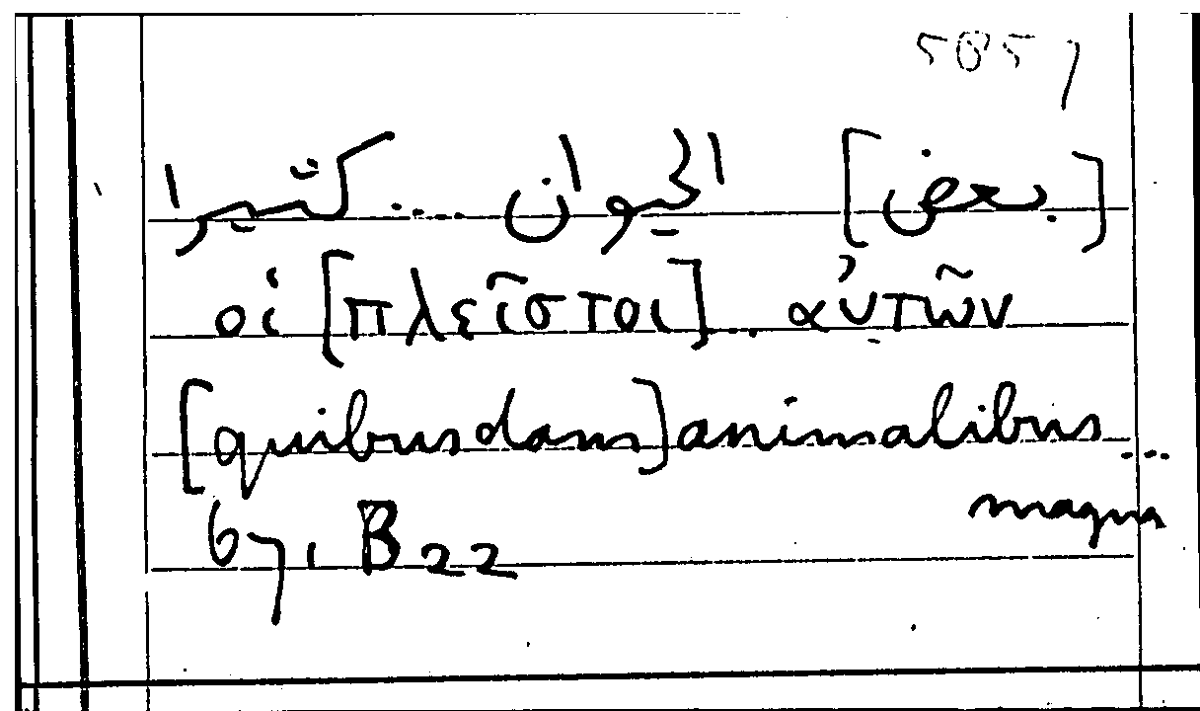 [بعض] الحيوان ... كثيرا
οἱ [πλεῖστοι] .. αὐτῶν
[quibusdam] animalibus ...
magna
67, B 22